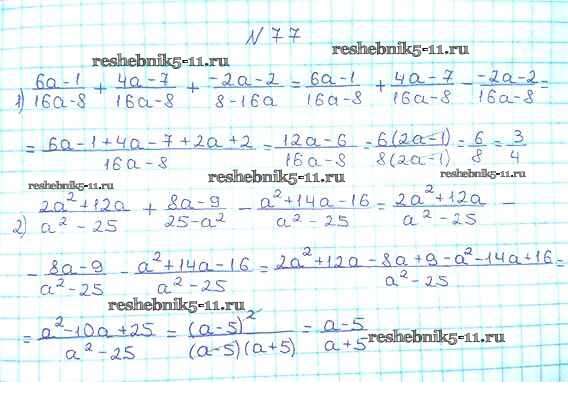 N 77
reshebnik5-11.ru
reshebnik5-11.ru
1) (6a-1)/(16a-8) + (4a-7)/(16a-8) + (-2a-2)/(8-16a) = (6a-1)/(16a-8) + (4a-7)/(16a-8) - (-2a-2)/(16a-8) =
= (6a-1+4a-7+2a+2)/(16a-8) = (12a-6)/(16a-8) = 6(2a-1)/8(2a-1) = 6/8 = 3/4
reshebnik5-11.ru
reshebnik5-11.ru
2) (2a²+12a)/(a²-25) + (8a-9)/(25-a²) - (a²+14a-16)/(a²-25) = (2a²+12a)/(a²-25) -
- (8a-9)/(a²-25) - (a²+14a-16)/(a²-25) = (2a²+12a-8a+9-a²-14a+16)/(a²-25) =
reshebnik5-11.ru
= (a²-10a+25)/(a²-25) = (a-5)²/(a-5)(a+5) = (a-5)/(a+5)
reshebnik5-11.ru